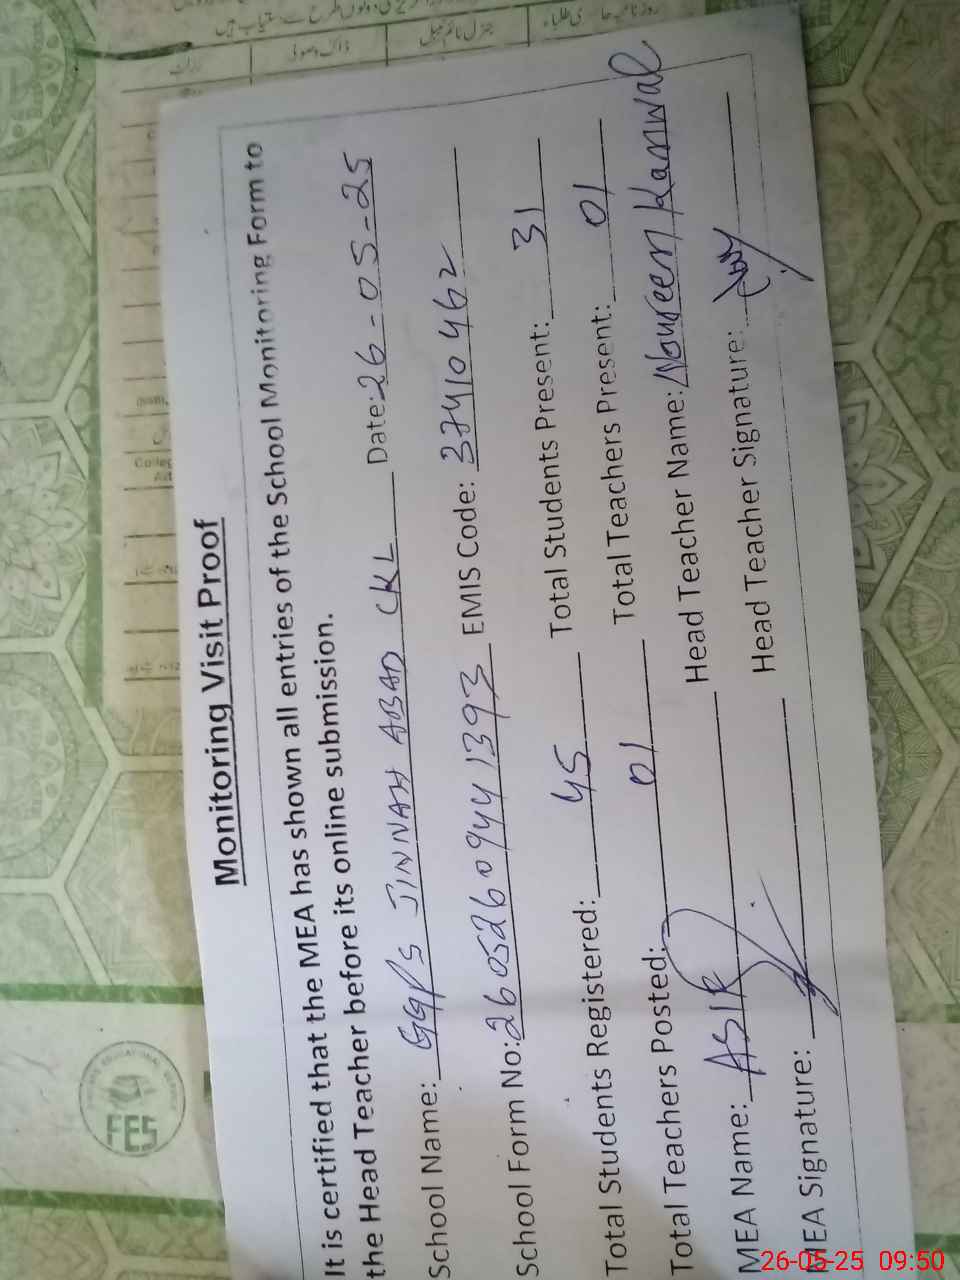 Monitoring Visit Proof
It is certified that the MEA has shown all entries of the School Monitoring Form to
the Head Teacher before its online submission.
School Name: GGPS JINNAH ABAD CKL Date: 26-05-25
School Form No: 26052609441393 EMIS Code: 37410462
Total Students Registered: 45 Total Students Present: 31
Total Teachers Posted: 01 Total Teachers Present: 01
MEA Name: ASIF Head Teacher Name: Noureen Kanwal
MEA Signature: Head Teacher Signature:
FES
26-05-25 09:50